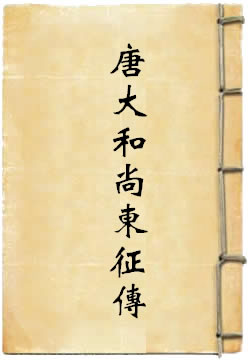 唐大和尚東征傳